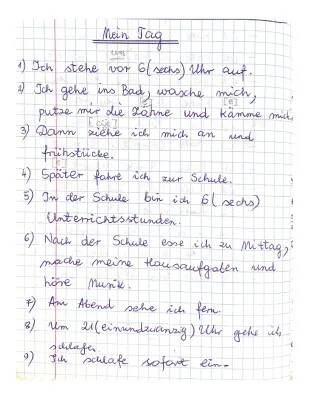 Mein Tag
um
1) Ich stehe vor 6 (sechs) Uhr auf.
2) Ich gehe ins Bad, wasche mich,
putze mir die Zähne und kämme mich
3) Dann ziehe ich mich an und
frühstücke.
4) Später fahre ich zur Schule.
5) In der Schule bin ich 6 (sechs)
Unterrichtsstunden.
6) Nach der Schule esse ich zu Mittag,
mache meine Hausaufgaben und
höre Musik.
7) Am Abend sehe ich fern.
8) Um 21 (einundzwanzig) Uhr gehe ich
schlafen
9) Ich schlafe sofort ein.